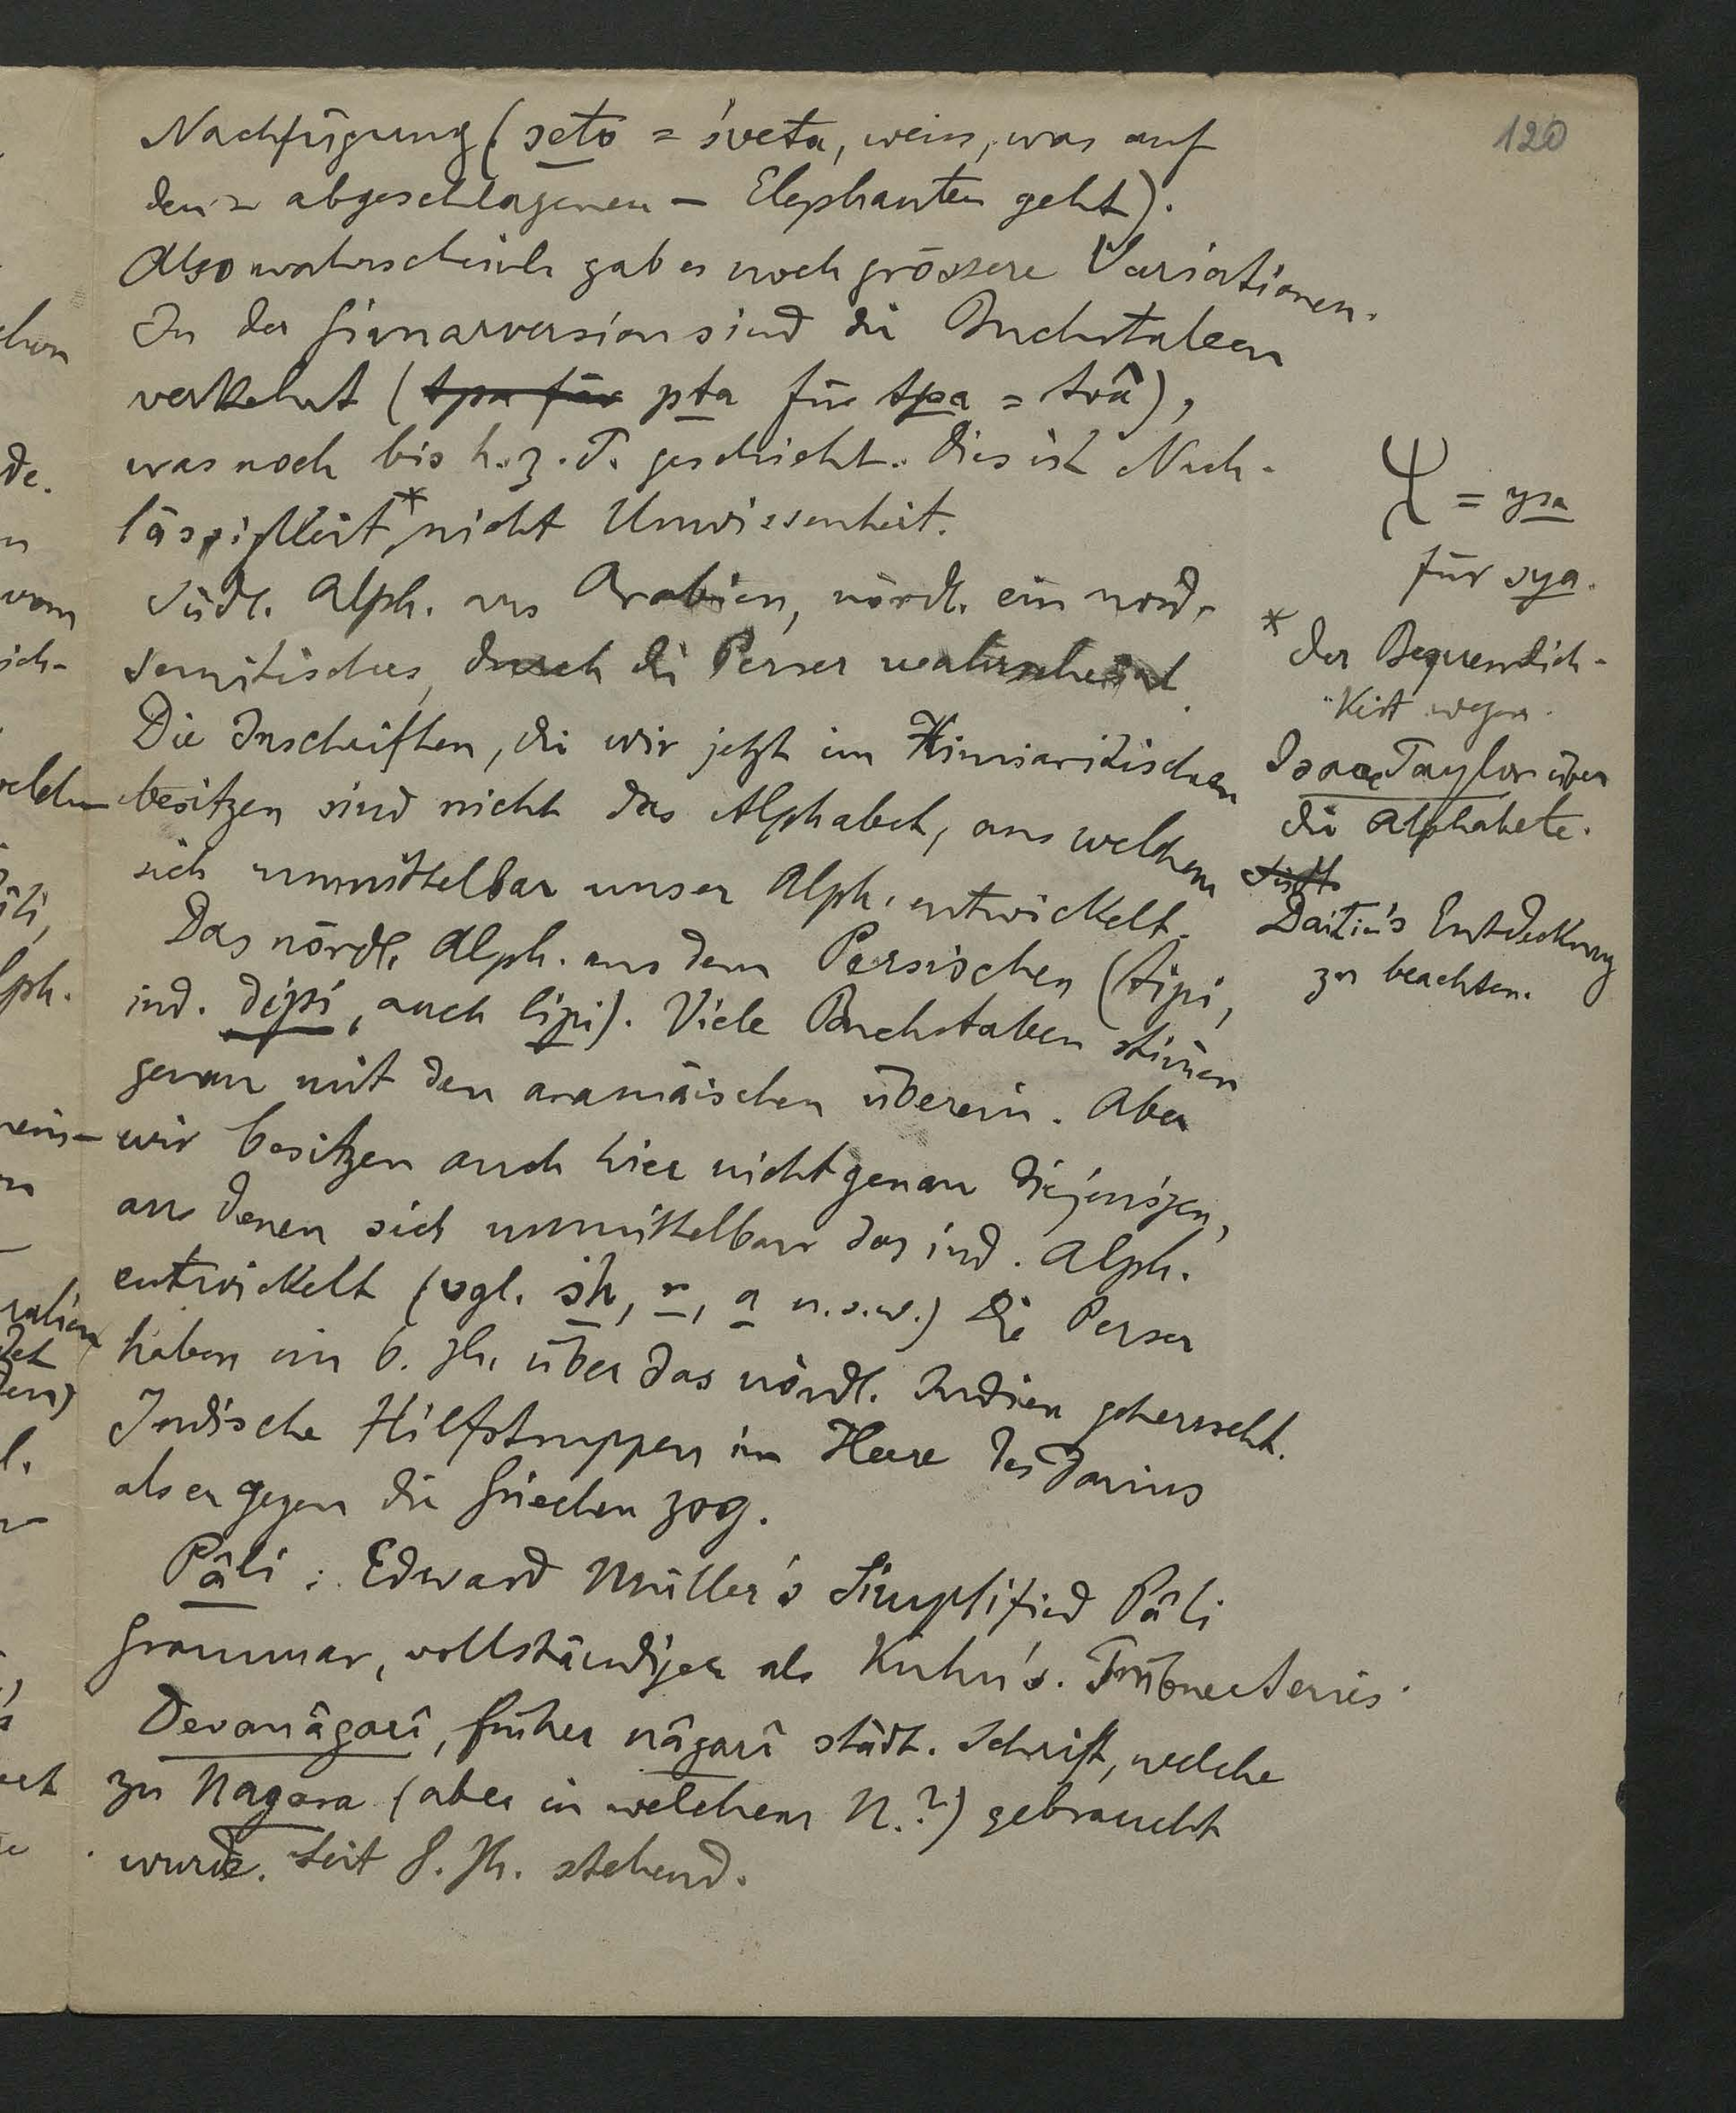 120
Nachfügung (seto = śveta, weiss, was auf
den - abgeschlagenen - Elephanten geht).
Also wahrscheinl. gab es noch grössere Variationen.
In der Girnarversion sind die Buchstaben
verkehrt (tpa für pta für tpa = tvâ),
was noch bis h. z. T. geschieht. Dies ist Nach-
lässigkeit*, nicht Unwissenheit.
Südl. Alph. aus Arabien, nördl. ein nord-
semitisches, durch die Perser wahrscheinl.
Die Inschriften, die wir jetzt im Himiaritischen
besitzen sind nicht das Alphabet, aus welchem
sich unmittelbar unser Alph. entwickelt.
Das nördl. Alph. aus dem Persischen (tipi,
ind. dipi, auch lipi). Viele Buchstaben stim̄en
genau mit den aramäischen überein. Aber
wir besitzen auch hier nicht genau diejenigen,
aus denen sich unmittelbar das ind. Alph.
entwickelt (vgl. sh, r, a u.s.w.) Die Perser
haben im 6. Jh. über das nördl. Indien geherrscht.
Indische Hilfstruppen im Heere des Darius
als er gegen die Griechen zog.
Pâli: Edward Müller's Simplified Pâli
Grammar, vollständiger als Kuhn's. Trübner Series.
Devanâgarî, früher nâgarî städt. Schrift, welche
zu Nagara (aber in welchem N.?) gebraucht
wurde. Seit 8. Jh. stehend.
= ysa
für sya.
* der Bequemlich-
keit wegen.
Isaac Taylor über
die Alphabete.
Südl.
Entdeckung
zu beachten.